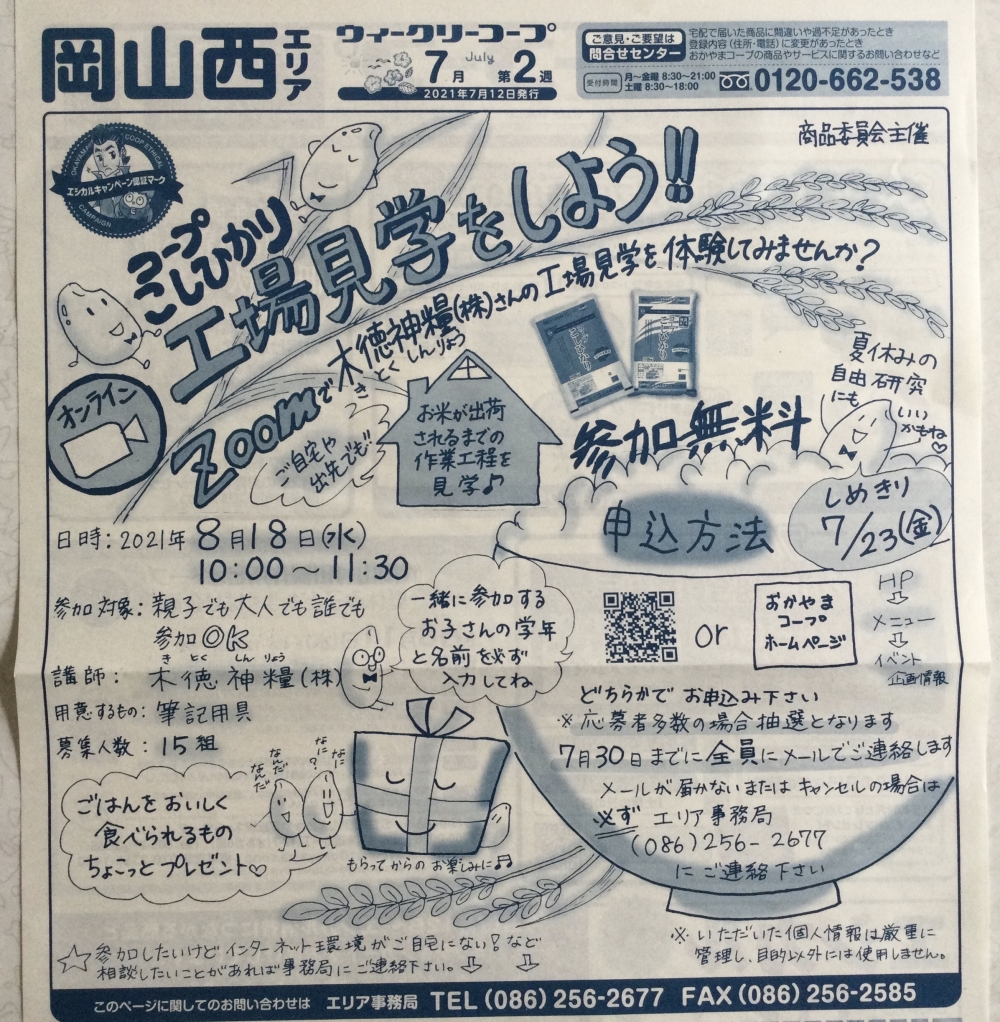 岡山西エリア
ウィークリーコープ
7月 July 第2週
2021年7月12日発行
ご意見・ご要望は
問合せセンター
宅配で届いた商品に間違いや過不足があったとき
登録内容(住所・電話)に変更があったとき
おかやまコープの商品やサービスに関するお問い合わせなど
受付時間
月〜金曜 8:30〜21:00
土曜 8:30〜18:00
0120-662-538
商品委員会主催
OKAYAMA COOP ETHICAL
エシカルキャンペーン認証マーク
CAMPAIGN
コープ
こしひかり
工場見学をしよう!!
Zoomで木徳神糧(株)さんの工場見学を体験してみませんか?
きとく しんりょう
オンライン
ご自宅や
出先でも!!
お米が出荷
されるまでの
作業工程を
見学♪
こしひかり
参加無料
夏休みの
自由研究
にも
いい
かもね♡
申込方法
しめきり
7/23(金)
日時:2021年8月18日(水)
10:00〜11:30
参加対象:親子でも大人でも誰でも
参加OK
き とく しん りょう
講師:木徳神糧(株)
用意するもの:筆記用具
募集人数:15組
一緒に参加する
お子さんの学年
と名前を必ず
入力してね
or
おかやま
コープ
ホームページ
HP
⇩
メニュー
⇩
イベント
企画情報
どちらかでお申込み下さい
※応募者多数の場合抽選となります
7月30日までに全員にメールでご連絡します
メールが届かないまたはキャンセルの場合は
必ず エリア事務局
(086)256-2677
にご連絡下さい
なんだ
なんだ
なに?
なに
ごはんをおいしく
食べられるもの
ちょこっとプレゼント♡
もらってからのお楽しみに♫
☆参加したいけどインターネット環境がご自宅にない?など
相談したいことがあれば事務局にご連絡下さい。⇩ ⇩
※いただいた個人情報は厳重に
管理し、目的以外には使用しません。
このページに関してのお問い合わせは エリア事務局 TEL(086)256-2677 FAX(086)256-2585